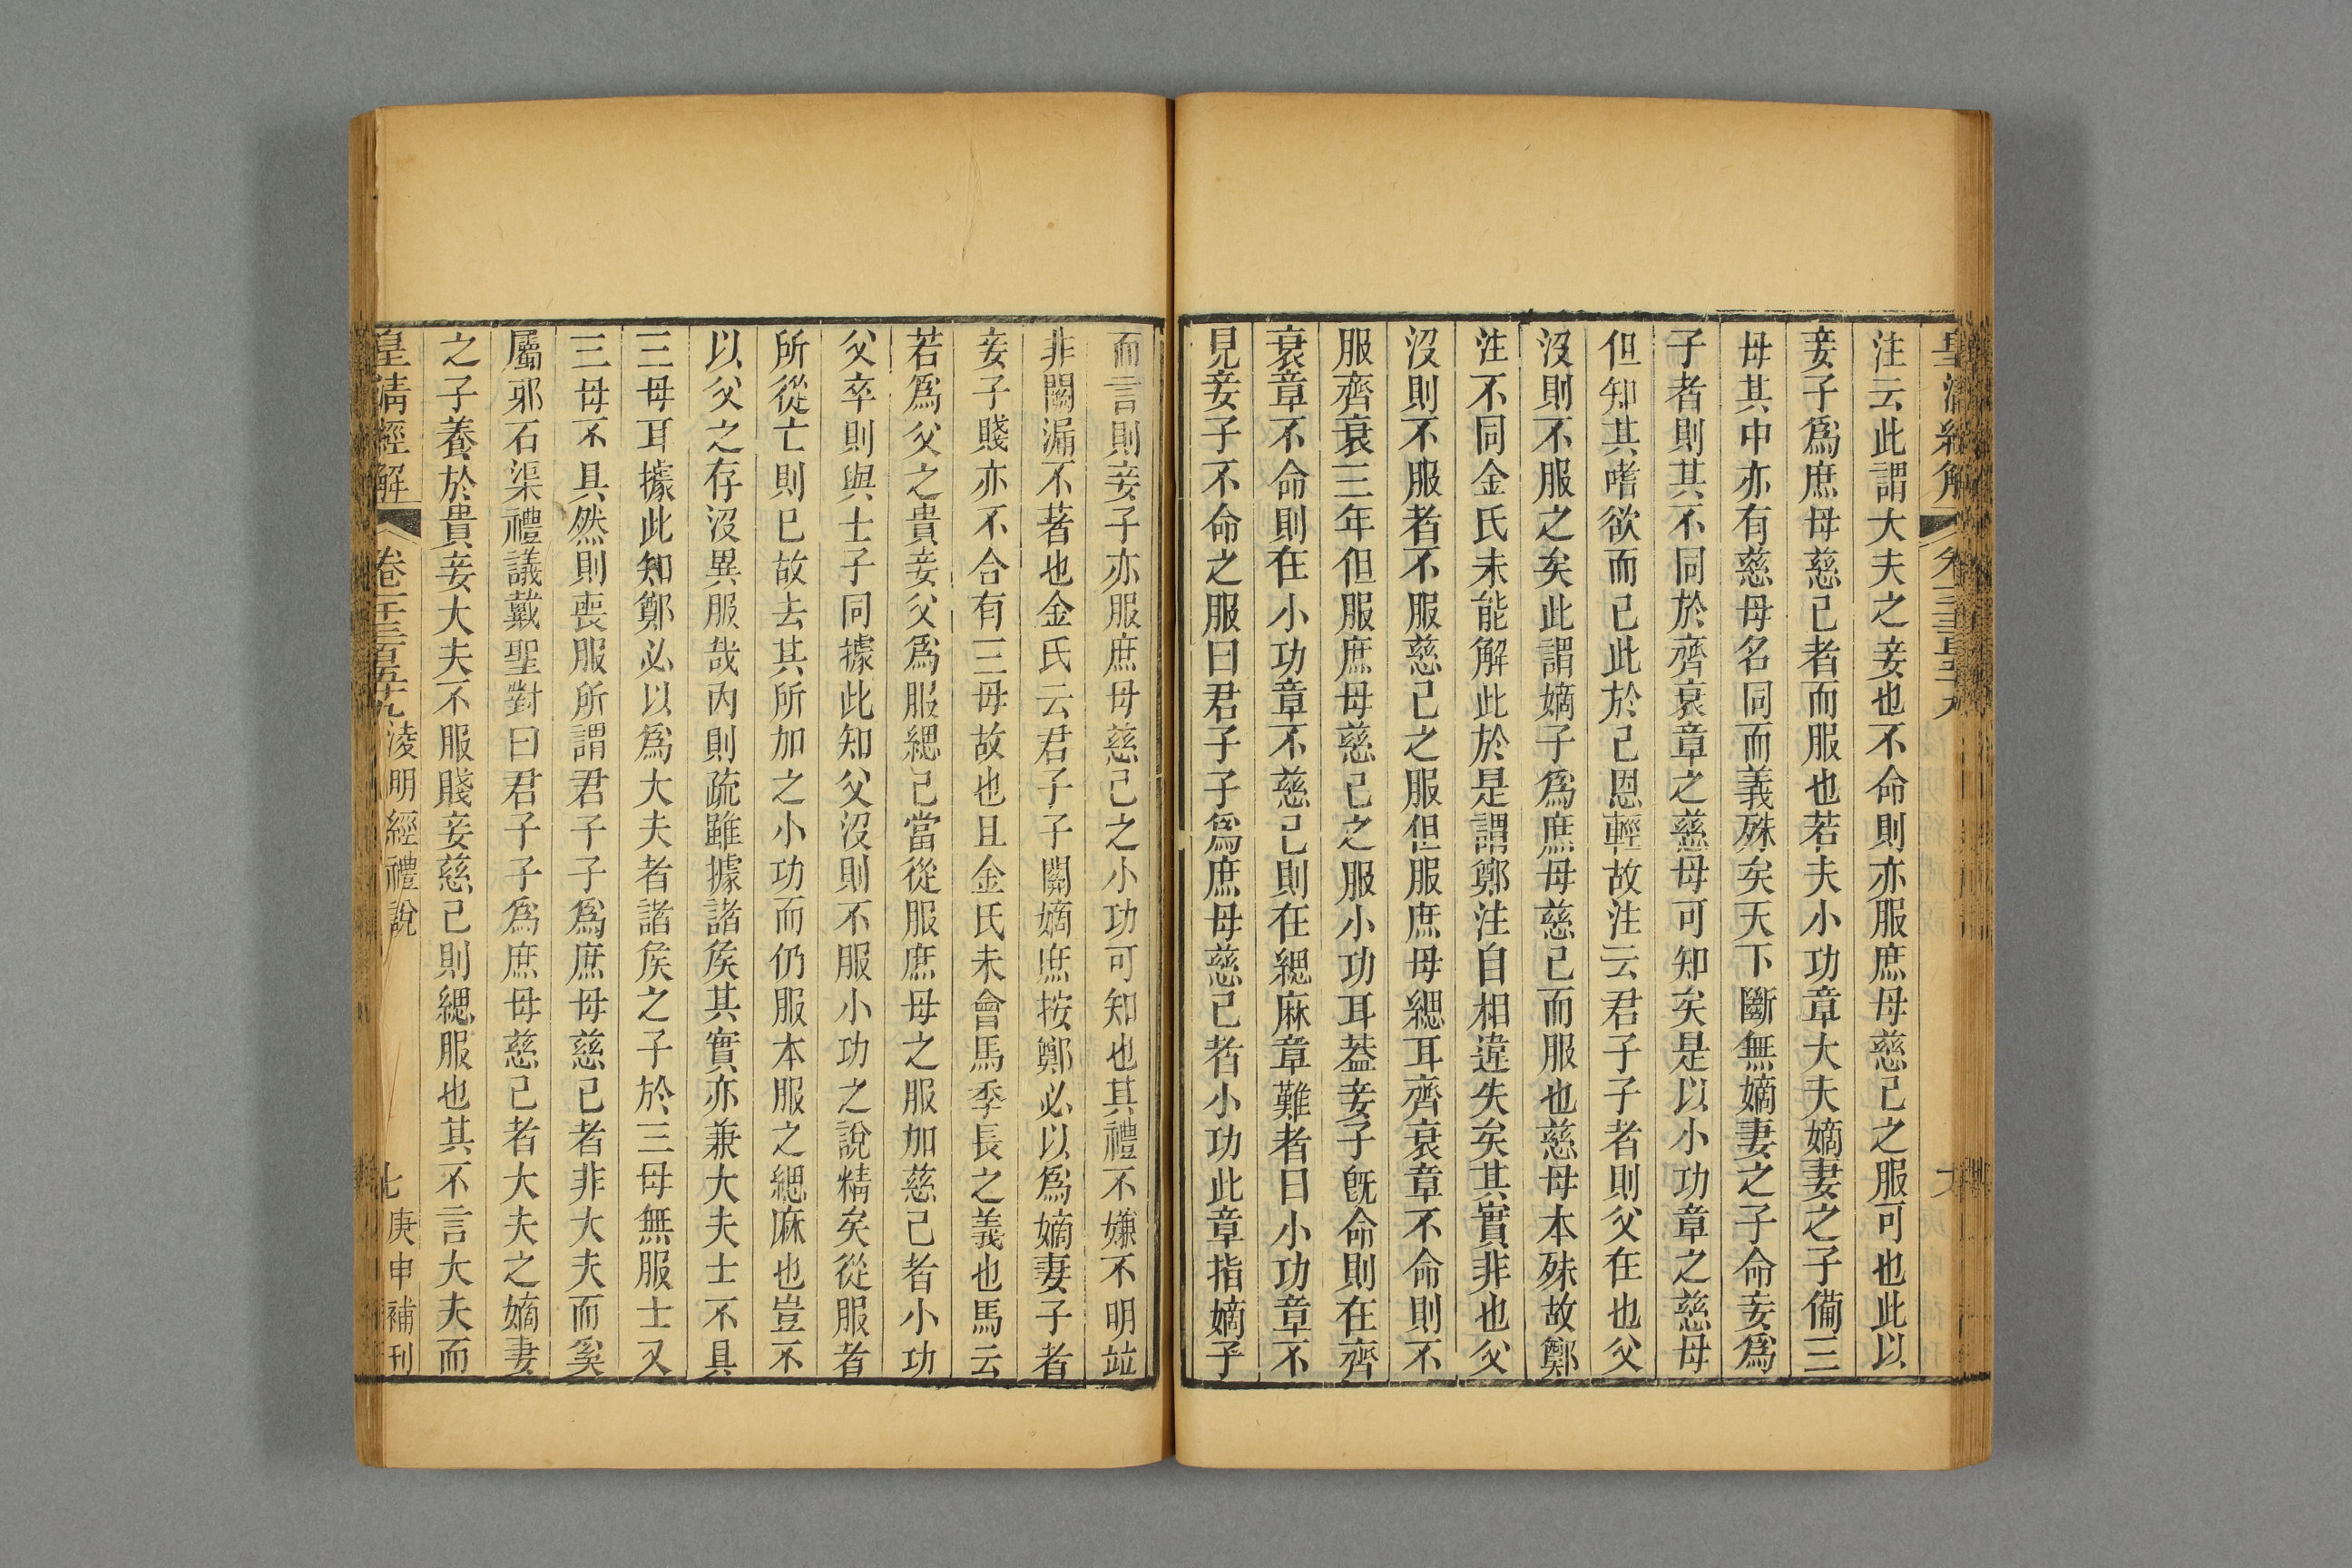 注云此謂大夫之妾也不命則亦服庶母慈己之服可也此以
妾子爲庶母慈己者而服也若夫小功章大夫嫡妻之子備三
母其中亦有慈母名同而義殊矣天下斷無嫡妻之子命妾爲
子者則其不同於齊衰章之慈母可知矣是以小功章之慈母
但知其嗜欲而已此於己恩輕故注云君子子者則父在也父
沒則不服之矣此謂嫡子爲庶母慈己而服也慈母本殊故鄭
注不同金氏未能解此於是謂鄭注自相違失矣其實非也父
沒則不服者不服慈己之服但服庶母緦耳齊衰章不命則不
服齊衰三年但服庶母慈己之服小功耳葢妾子旣命則在齊
衰章不命則在小功章不慈己則在緦麻章難者曰小功章不
見妾子不命之服曰君子子爲庶母慈己者小功此章指嫡子
而言則妾子亦服庶母慈己之小功可知也其禮不嫌不明竝
非闕漏不著也金氏云君子子關嫡庶按鄭必以爲嫡妻子者
妾子賤亦不合有三母故也且金氏未會馬季長之義也馬云
若爲父之貴妾父爲服緦己當從服庶母之服加慈己者小功
父卒則與士子同據此知父沒則不服小功之說精矣從服者
所從亡則已故去其所加之小功而仍服本服之緦麻也豈不
以父之存沒異服哉內則疏雖據諸矦其實亦兼大夫士不具
三母耳據此知鄭必以爲大夫者諸矦之子於三母無服士又
三母不具然則喪服所謂君子子爲庶母慈己者非大夫而奚
屬邪石渠禮議戴聖對曰君子子爲庶母慈己者大夫之嫡妻
之子養於貴妾大夫不服賤妾慈己則緦服也其不言大夫而
皇清經解 卷一千三百五十九 淩明經禮說 七 庚申補刊